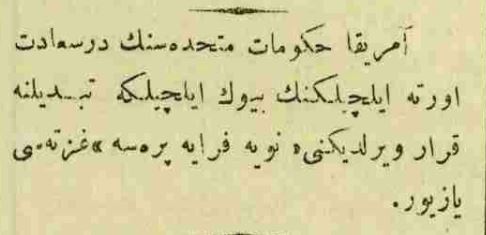 آمریقا حکومات متحده‌سنك درسعادت
اورته ایلچیلكنك بیوك ایلچیلكه تبدیلنه
قرار ویرلدیكنی « نویه فرایه پره‌سه » غزته‌سی
یازیور.